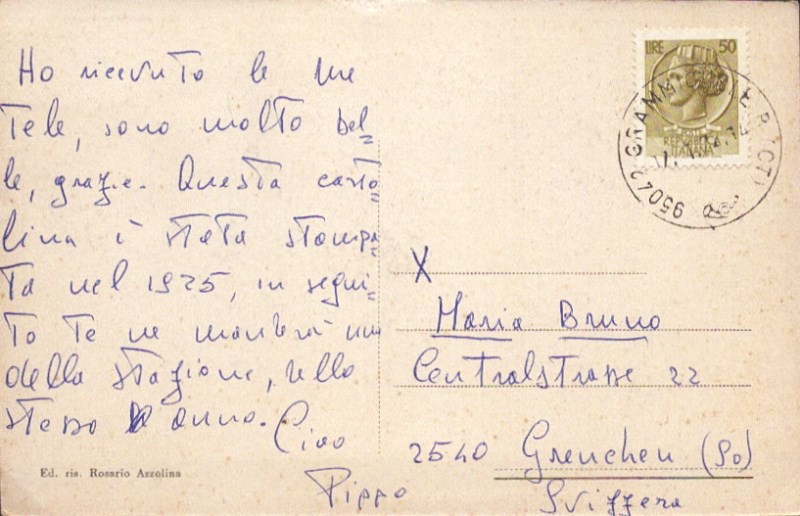 Ho ricevuto le me
Tele, sono molto bel=
le, grazie. Questa carto
lina è stata stampa
Ta nel 1925, in segui=
To Te ne manterò una
della stazione, sello
stesso anno. Ciao
Pippo
Ed. ris. Rosario Azzolina
LIRE 50
REPUBBLICA
ITALIANA
95042 GRAMMICHELE
X
Maria Bruno
Centralstrasse 22
2540 Grenchen (So)
Svizzera